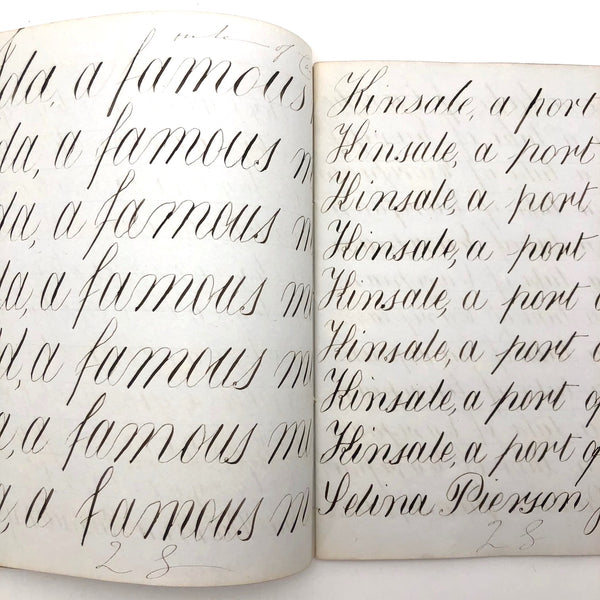 da, a famous
da, a famous m
da, a famous m
da, a famous m
d, a famous m
a, a famous m
a, a famous m
28
Kinsale, a port
Kinsale, a port
Kinsale, a port
Kinsale, a port
Kinsale, a port o
Kinsale, a port o
Kinsale, a port of
Kinsale, a port of
Selina Pierson
28